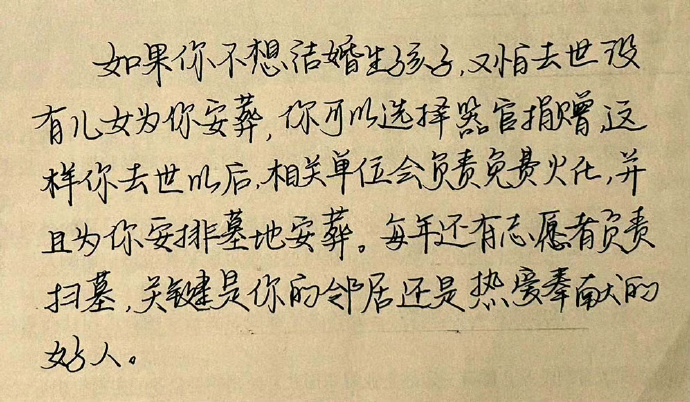 如果你不想结婚生孩子,又怕去世没
有儿女为你安葬,你可以选择器官捐赠,这
样你去世以后,相关单位会负责免费火化,并
且为你安排墓地安葬。每年还有志愿者负责
扫墓,关键是你的邻居还是热爱奉献的
好人。